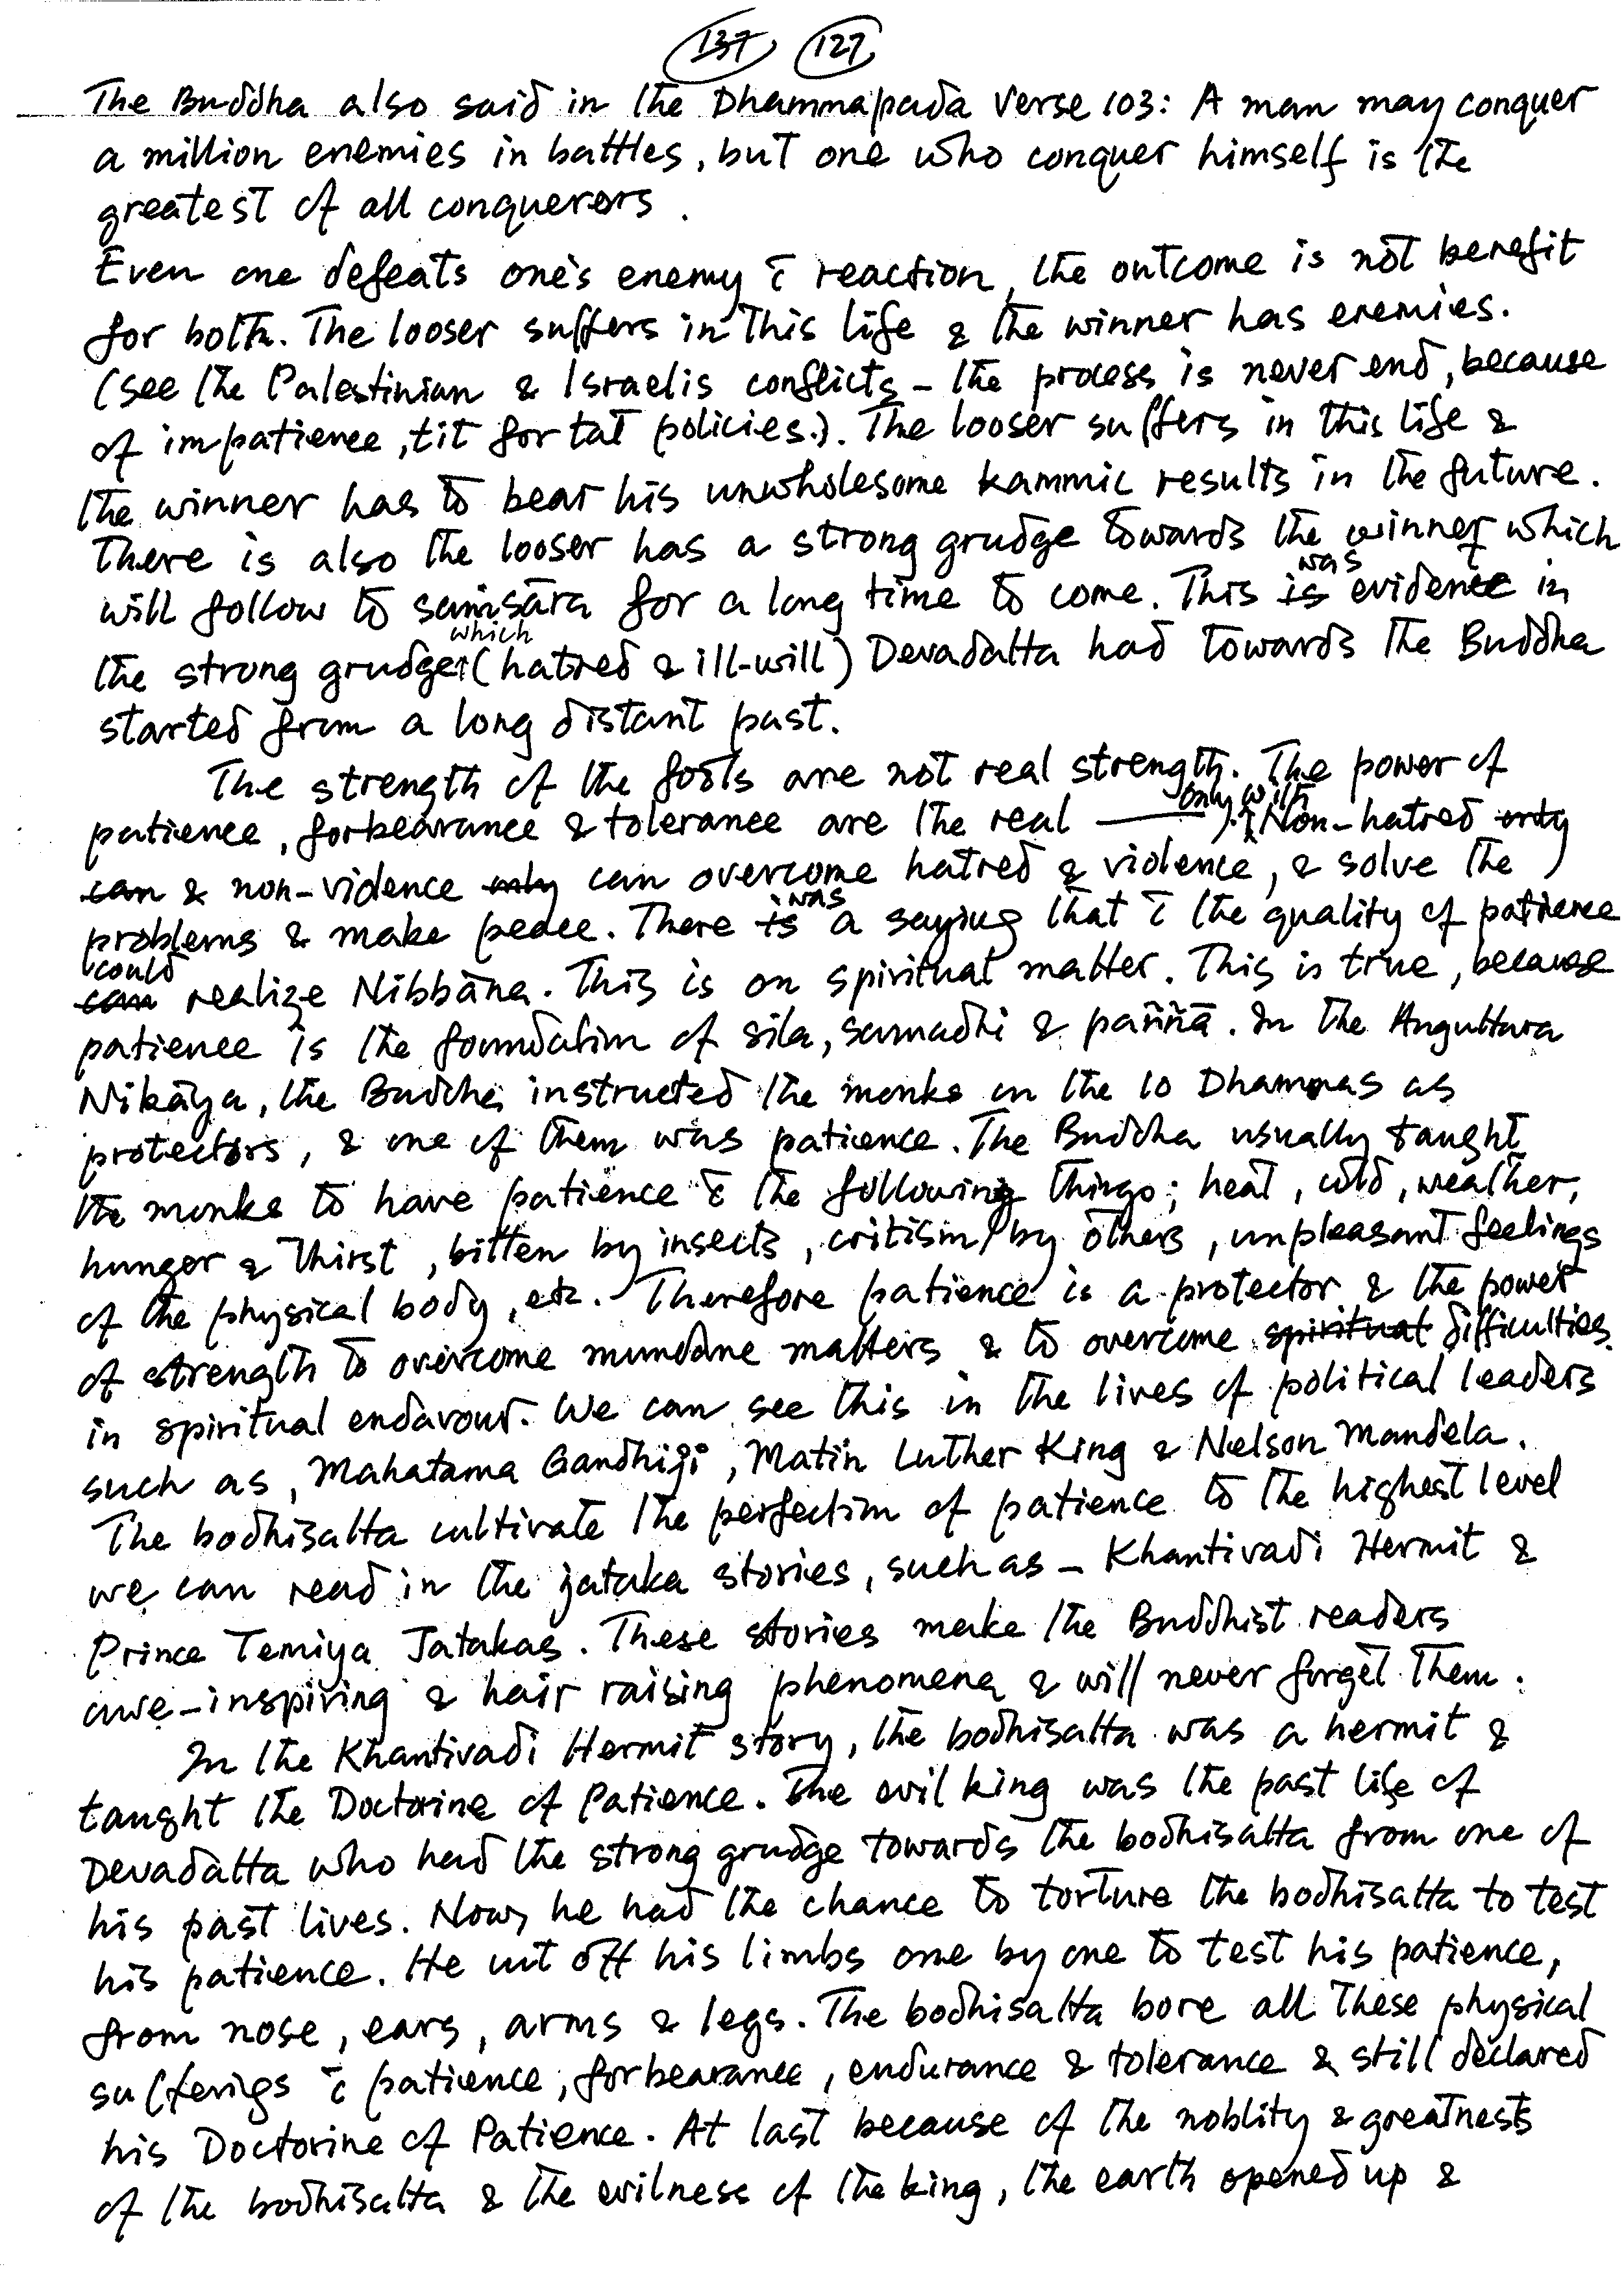 137 127
The Buddha also said in the Dhammapada Verse 103: A man may conquer
a million enemies in battles, but one who conquer himself is the
greatest of all conquerors.
Even one defeats one's enemy c̄ reaction, the outcome is not benefit
for both. The looser suffers in this life & the winner has enemies.
(see the Palestinian & Israelis conflicts – the process is never end, because
of impatience, tit for tat policies.). The looser suffers in this life &
the winner has to bear his unwholesome kammic results in the future.
There is also the looser has a strong grudge towards the winner which
will follow to saṁsāra for a long time to come. This is was evidence in
the strong grudge which (hatred & ill-will) Devadatta had towards the Buddha
started from a long distant past.
The strength of the fools are not real strength. The power of
patience, forbearance & tolerance are the real ——. only with Non-hatred only
can & non-vidence only can overcome hatred & violence, & solve the
problems & make peace. There is was a saying that c̄ the quality of patience
can could realize Nibbāna. This is on spiritual matter. This is true, because
patience is the foundation of sila, samadhi & paññā. In the Anguttara
Nikāya, the Buddha instructed the monks on the 10 Dhammas as
protectors, & one of them was patience. The Buddha usually taught
the monks to have patience c̄ the following things; heat, cold, weather,
hunger & thirst, bitten by insects, critism by others, unpleasant feelings
of the physical body, etc. Therefore patience is a protector & the power
of strength to overcome mundane matters & to overcome spiritual difficulties
in spiritual endavour. We can see this in the lives of political leaders
such as, Mahatama Gandhiji, Matin Luther King & Nelson Mandela.
The bodhisatta cultivate the perfection of patience to the highest level
we can read in the jataka stories, such as – Khantivadi Hermit &
Prince Temiya Jatakas. These stories make the Buddhist readers
awe-inspiring & hair raising phenomena & will never forget them.
In the Khantivadi Hermit story, the bodhisatta was a hermit &
taught the Doctorine of Patience. The evil king was the past life of
Devadatta who had the strong grudge towards the bodhisatta from one of
his past lives. Now, he had the chance to torture the bodhisatta to test
his patience. He cut off his limbs one by one to test his patience,
from nose, ears, arms & legs. The bodhisatta bore all these physical
sufferigs c̄ patience, forbearance, endurance & tolerance & still declared
his Doctorine of Patience. At last because of the noblity & greatness
of the bodhisatta & the evilness of the king, the earth opened up &